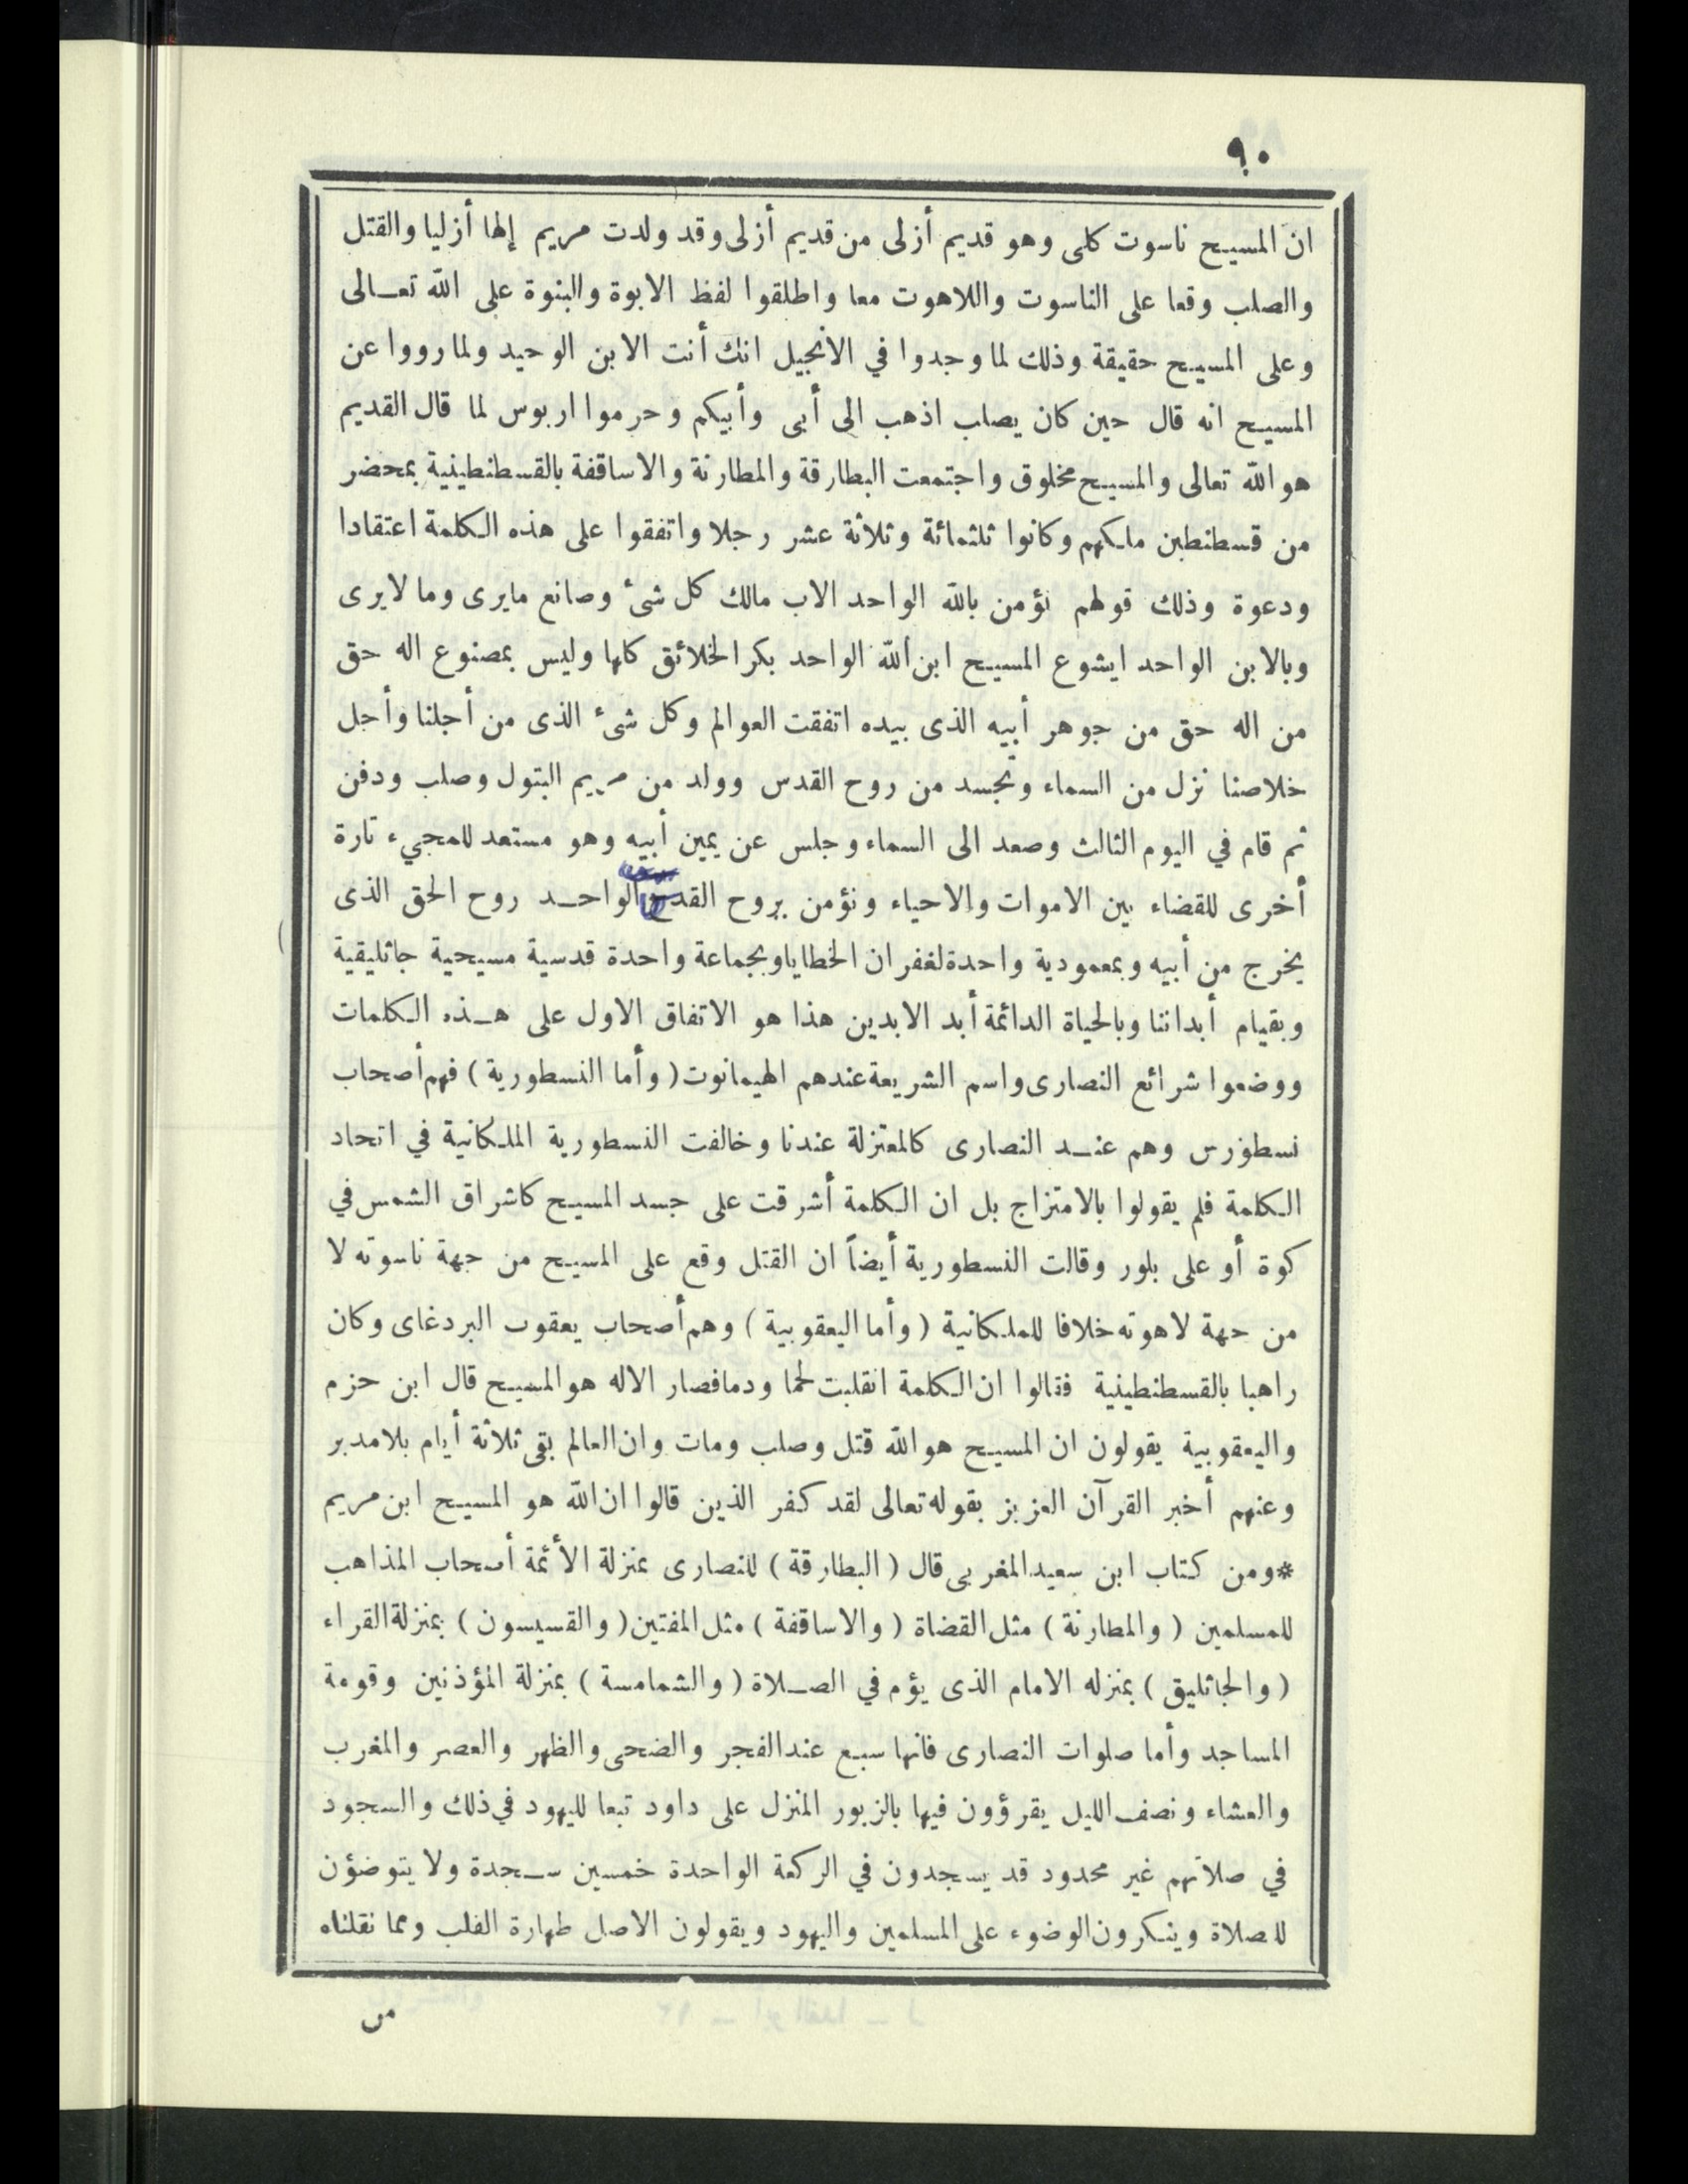 ٩٠
ان المسيح ناسوت كلى وهو قديم أزلى من قديم أزلى وقد ولدت مريم إلها أزليا والقتل
والصلب وقعا على الناسوت واللاهوت معا واطلقوا لفظ الابوة والبنوة على الله تعالى
وعلى المسيح حقيقة وذلك لما وجدوا في الانجيل انك أنت الابن الوحيد ولما رووا عن
المسيح انه قال حين كان يصلب اذهب الى أبى وأبيكم وحرموا اربوس لما قال القديم
هو الله تعالى والمسيح مخلوق واجتمعت البطارقة والمطارنة والاساقفة بالقسطنطينية بمحضر
من قسطنطين ملكهم وكانوا ثلثمائة وثلاثة عشر رجلا واتفقوا على هذه الكلمة اعتقادا
ودعوة وذلك قولهم نؤمن بالله الواحد الاب مالك كل شئ وصانع مايرى وما لايرى
وبالابن الواحد ايشوع المسيح ابن الله الواحد بكر الخلائق كلها وليس بمصنوع اله حق
من اله حق من جوهر أبيه الذى بيده اتفقت العوالم وكل شئ الذى من أجلنا وأجل
خلاصنا نزل من السماء وتجسد من روح القدس وولد من مريم البتول وصلب ودفن
ثم قام في اليوم الثالث وصعد الى السماء وجلس عن يمين أبيه وهو مستعد للمجيء تارة
أخرى للقضاء بين الاموات والاحياء ونؤمن بروح القدس الواحد روح الحق الذى
يخرج من أبيه وبمعمودية واحدة لغفران الخطايا وبجماعة واحدة قدسية مسيحية جاثليقية
وبقيام أبداننا وبالحياة الدائمة أبد الابدين هذا هو الاتفاق الاول على هذه الكلمات
ووضعوا شرائع النصارى واسم الشريعة عندهم الهيمانوت (وأما النسطورية) فهم أصحاب
نسطورس وهم عند النصارى كالمعتزلة عندنا وخالفت النسطورية الملكانية في اتحاد
الكلمة فلم يقولوا بالامتزاج بل ان الكلمة أشرقت على جسد المسيح كاشراق الشمس في
كوة أو على بلور وقالت النسطورية أيضاً ان القتل وقع على المسيح من جهة ناسوته لا
من جهة لاهوته خلافا للملكانية (وأما اليعقوبية) وهم أصحاب يعقوب البردغاى وكان
راهبا بالقسطنطينية فقالوا ان الكلمة انقلبت لحما ودما فصار الاله هو المسيح قال ابن حزم
واليعقوبية يقولون ان المسيح هو الله قتل وصلب ومات وان العالم بقى ثلاثة أيام بلا مدبر
وعنهم أخبر القرآن العزيز بقوله تعالى لقد كفر الذين قالوا ان الله هو المسيح ابن مريم
*ومن كتاب ابن سعيد المغربى قال (البطارقة) للنصارى بمنزلة الأئمة أصحاب المذاهب
للمسلمين (والمطارنة) مثل القضاة (والاساقفة) مثل المفتين (والقسيسون) بمنزلة القراء
(والجاثليق) بمنزله الامام الذى يؤم في الصلاة (والشمامسة) بمنزلة المؤذنين وقومة
المساجد وأما صلوات النصارى فانها سبع عند الفجر والضحى والظهر والعصر والمغرب
والعشاء ونصف الليل يقرؤون فيها بالزبور المنزل على داود تبعا لليهود في ذلك والسجود
في صلاتهم غير محدود قد يسجدون في الركعة الواحدة خمسين سجدة ولا يتوضؤن
للصلاة وينكرون الوضوء على المسلمين واليهود ويقولون الاصل طهارة القلب ومما نقلناه
من